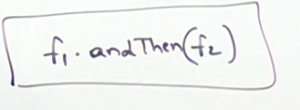 f₁.andThen(f₂)